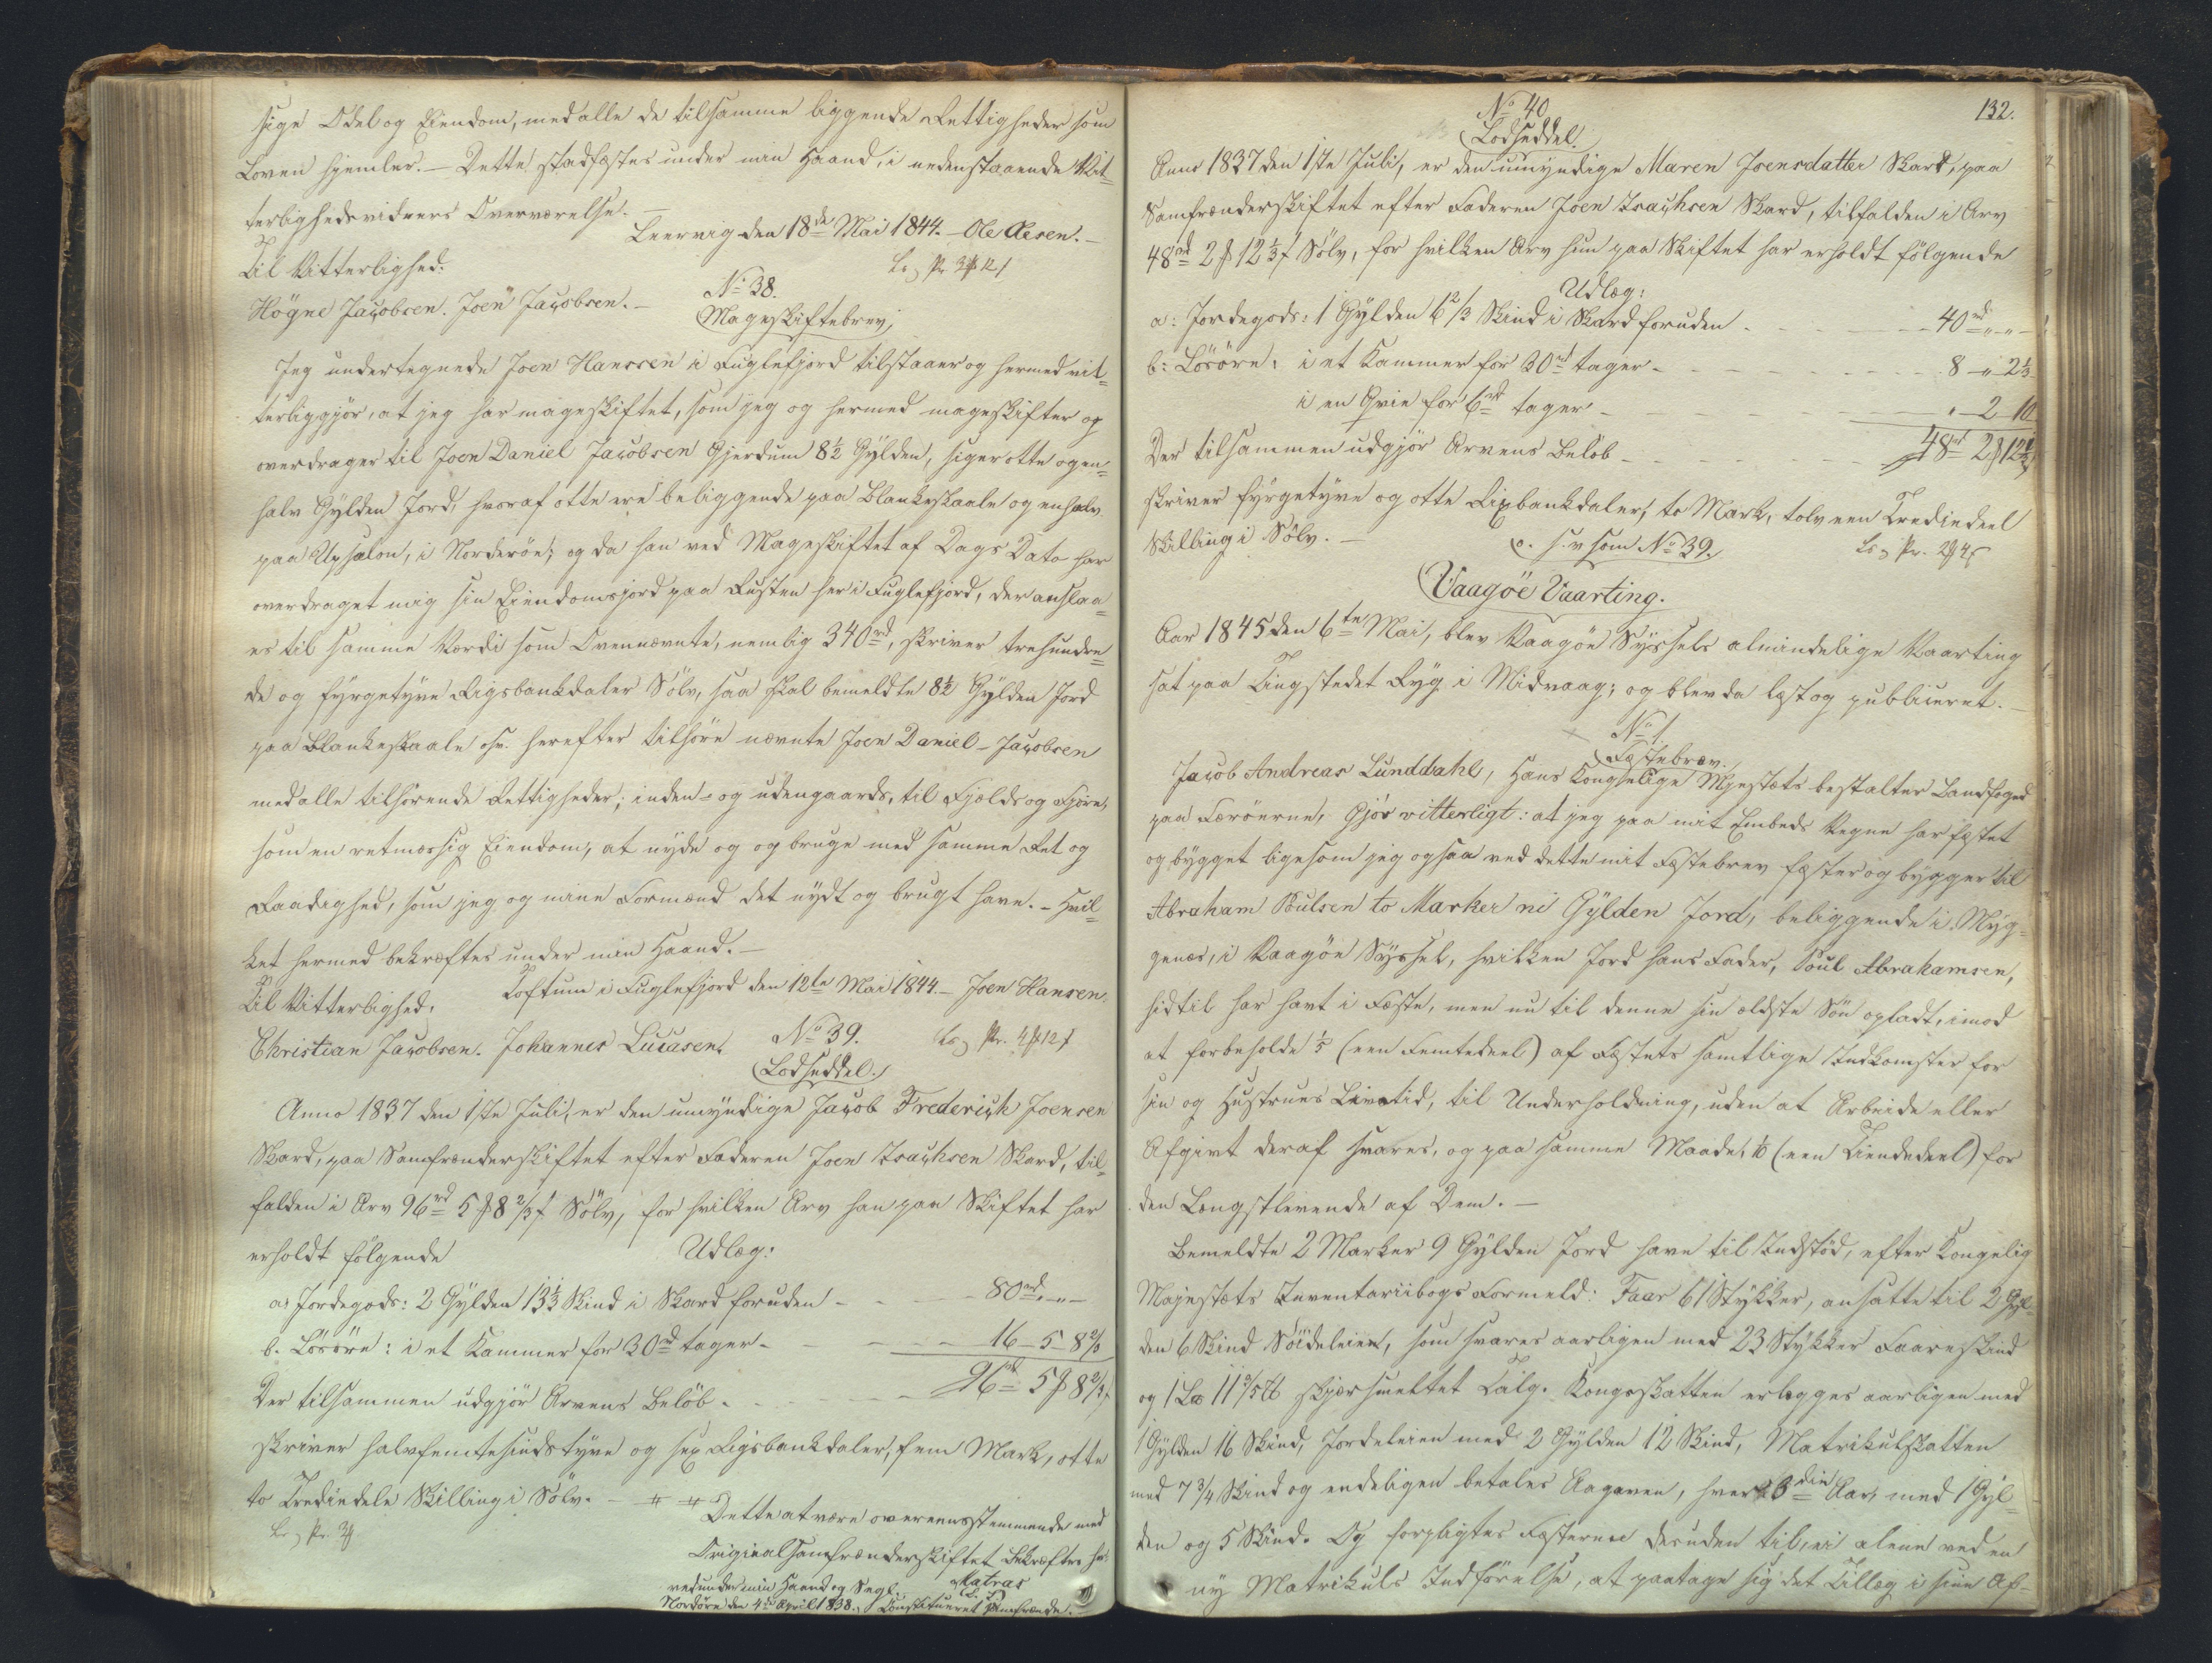 sige Odel og Eiendom, med alle de tilsamme liggende Rettigheder som
Loven hjemler. — Dette stadfæstes under min Haand, i nedenstaaende Vit=
terlighedsvidners Overværelse. —
Leervig den 18de Mai 1844. Ole Olesen. —
Til Vitterlighed:
Högne Jacobsen. Joen Jacobsen. —
No 38.
Mageskiftebrev,
Jeg undertegnede Joen Hanssen i Fuglefjord tilstaaer og hermed vit=
terliggjör, at jeg har mageskiftet, som jeg og hermed mageskifter og
overdrager til Joen Daniel Jacobsen Gjerdum 8½ Gylden, siger otte og en=
halv Gylden Jord, hvoraf otte ere beliggende paa Blankeskaale og en halv
paa Upsalon, i Norderöe; og da han ved Mageskiftet af Dags Dato har
overdraget mig sin Eiendomsjord paa Rusten her i Fuglefjord, der anslaa=
es til samme Værdi som Ovennævnte, nemlig 340rd, skriver trehundre=
de og fyrgetyve Rigsbankdaler Sölv, saa skal bemeldte 8½ Gylden Jord
paa Blankeskaale osv. herefter tilhöre nævnte Joen Daniel Jacobsen
med alle tilhörende Rettigheder, inden= og udengaards, til Fjelds og Fjöre,
som en retmæssig Eiendom, at nyde og og bruge med samme Ret og
Raadighed, som jeg og mine Formænd det nydt og brugt have. — Hvil=
ket hermed bekræftes under min Haand. —
Toftum i Fuglefjord den 12te Mai 1844. — Joen Hansen.
Til Vitterlighed:
Christian Jacobsen. Johannes Lucasen.
No 39.
Lodseddel.
Anno 1837 den 1ste Juli, er den umyndige Jacob Frederich Joensen
Skard, paa Samfrænderskiftet efter Faderen Joen Isachsen Skard, til=
falden i Arv 96rd 5 ꝟ 8 2/3 ß Sölv, for hvilken Arv han paa Skiftet har
erholdt fölgende Udlæg:
a: Jordegods: 2 Gylden 13⅓ Skind i Skard foruden — 80rd „ — „ —
b. Lösöre: i et Kammer for 30rd tager — 16 — 5 — 8 2/3
Der tilsammen udgjör Arvens Belöb — 96rd 5 ꝟ 8 2/3 ß
skriver halvfemtesindstyve og sex Rigsbankdaler, fem Mark, otte
to Trediedele Skilling i Sölv. —
Dette at være overeensstemmende med
Originalsamfrænderskiftet bekræftes her
ved under min Haand og Segl.
Matras
Nordöre den 4de April 1838. Constitueret Samfrænde.
132.
No 40
Lodseddel.
Anno 1837 den 1ste Juli, er den umyndige Maren Joensdatter Skard, paa
Samfrænderskiftet efter Faderen Joen Isachsen Skard, tilfalden i Arv
48rd 2 ꝟ 12⅓ ß Sölv, for hvilken Arv hun paa Skiftet har erholdt fölgende
Udlæg:
a: Jordegods: 1 Gylden 6 2/3 Skind i Skard foruden — 40rd „ — „ —
b: Lösöre: i et Kammer for 30rd tager — 8 — „ 2⅓
i en Qvie for 6rd tager — „ — 2 — 10
Der tilsammen udgjör Arvens Belöb — 48rd 2 ꝟ 12⅓ ß
skriver fyrgetyve og otte Rixbankdaler, to Mark, tolv een Trediedeel
Skilling i Sölv. —
o. s. v som No 39.
Vaagöe Vaarting.
Aar 1845 den 6te Mai, blev Vaagöe Syssels almindelige Vaarting
sat paa Tingstedet Ryg i Midvaag; og blev da læst og publiceret. —
No 1.
Fæstebrev.
Jacob Andreas Lunddahl, Hans Kongelige Mjestæts bestalter Landfoged
paa Færöerne, Gjör vitterligt: at jeg paa mit Embeds Vegne har fæstet
og bygget ligesom jeg ogsaa ved dette mit Fæstebrev fæster og bygger til
Abraham Poulsen to Marker ni Gylden Jord, beliggende i Myg=
genæs, i Vaagöe Syssel, hvilken Jord hans Fader, Poul Abrahamsen,
hidtil har havt i Fæste, men nu til denne sin ældste Sön opladt, imod
at forbeholde ⅕ (een Femtedeel) af Fæstets samtlige Indkomster for
sin og Hustrues Livstid, til Underholdning, uden at Arbeide eller
Afgivt deraf svares, og paa samme Maade 1/10 (een Tiendedeel) for
den Længstlevende af Dem. —
Bemeldte 2 Marker 9 Gylden Jord have til Indstöd, efter Kongelig
Majestæts Inventariibogs Formeld: Faar 61 Stykker, ansatte til 2 Gyl=
den 6 Skind Söideleien, som svares aarligen med 23 Stykker Faareskind
og 1 L℔ 11 3/5 ℔ skjærsmeltet Talg. Kongsskatten erlægges aarligen med
1 Gylden 16 Skind, Jordeleien med 2 Gylden 12 Skind, Matrikulskatten
med 7 3/4 Skind og endeligen betales Aagaven, hver 3die Aar, med 1 Gyl=
den og 5 Skind. Og forpligtes Fæsteren desuden til, ei alene ved en
ny Matrikuls Indförelse, at paatage sig det Tillæg i sine Af=